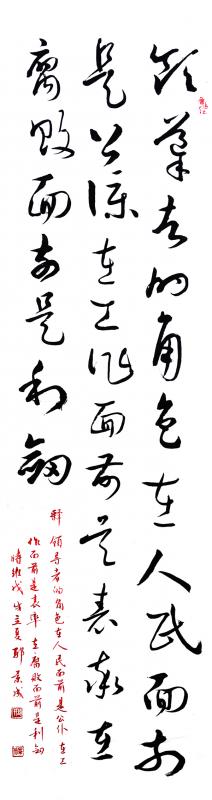 领导者的角色在人民面前
是公仆在工作面前是表率在
腐败面前是利剑
释 领导者的角色在人民面前是公仆在工
作面前是表率在腐败面前是利剑
時維戊戌立夏